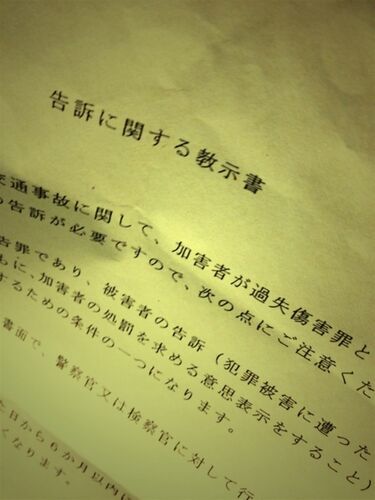 告訴に関する教示書
交通事故に関して、加害者が過失傷害罪と
の告訴が必要ですので、次の点にご注意くだ
告罪であり、被害者の告訴（犯罪被害に遭った
もに、加害者の処罰を求める意思表示をすること）
するための条件の一つになります。
書面で、警察官又は検察官に対して行
た日から6か月以内に
くなります。